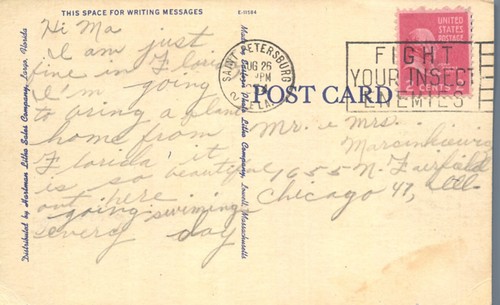 THIS SPACE FOR WRITING MESSAGES
E-H584
Hi Ma
I am just
fine in Florida
I'm going
to bring a plant
home from
Florida it
is so beautiful
out here
going swiming
every day
Distributed by Hartman Litho Sales Company, Largo, Florida
Made by Tichnor
Litho Company, Lowell, Massachusetts
SAINT PETERSBURG
AUG 26
PM
FLA.
UNITED
STATES
POSTAGE
2 CENTS
FIGHT
YOUR INSECT
ENEMIES
POST CARD
Mr. & Mrs.
1655 N. Fairfield
Chicago 47, Ill.